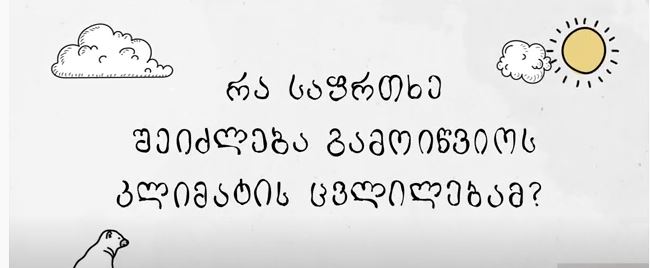 რა საფრთხე
შეიძლება გამოიწვიოს
კლიმატის ცვლილებამ?